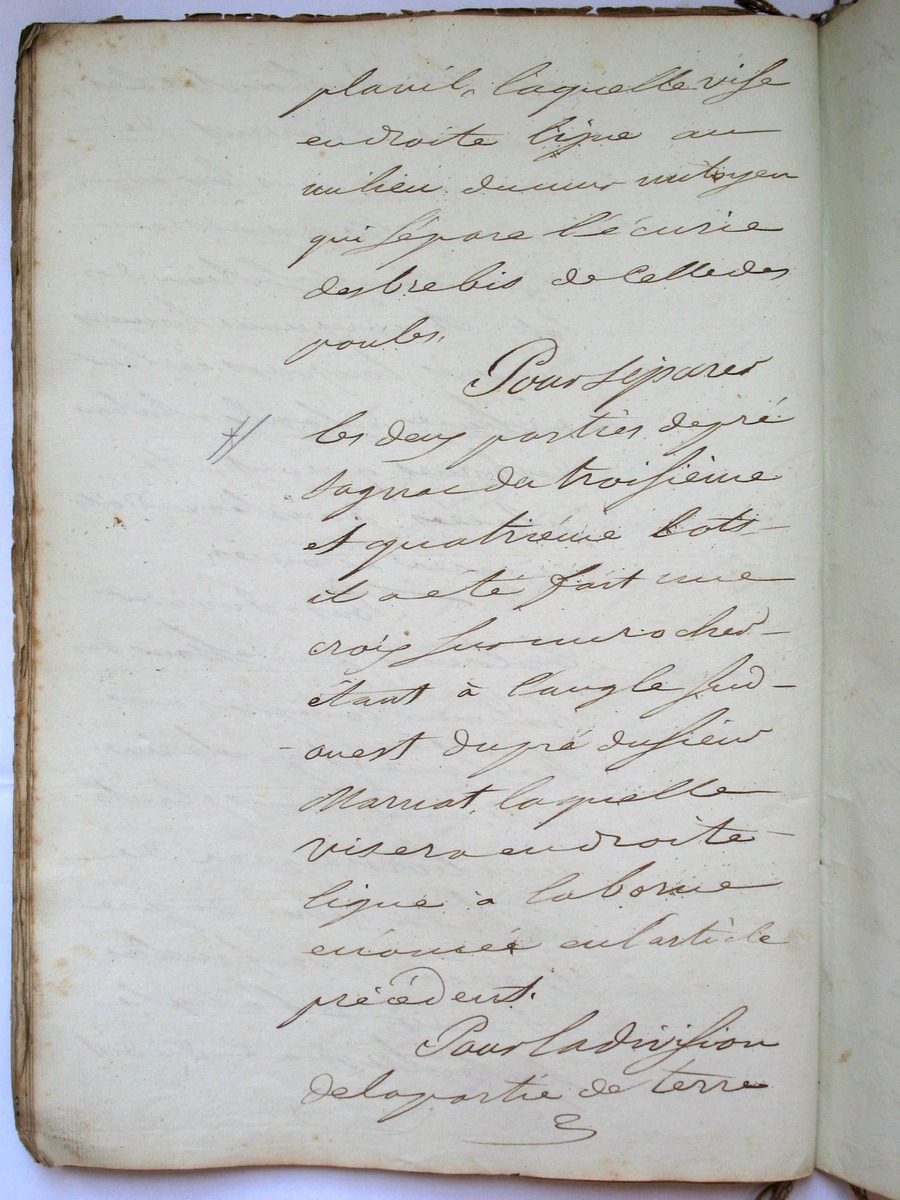 planil, laquelle vise
en droite ligne au
milieu du mur mitoyen
qui sépare l'écurie
des brebis de celle des
poules.
Pour séparer
les deux parties de pré
sagnac du troisième
et quatrième lots
il a été fait une
croix sur un rocher
étant à l'angle sud-
ouest du pré du sieur
Marnat, laquelle
visera en droite
ligne à la borne
enoncée en l'article
précédent.
Pour la division
de la partie de terre